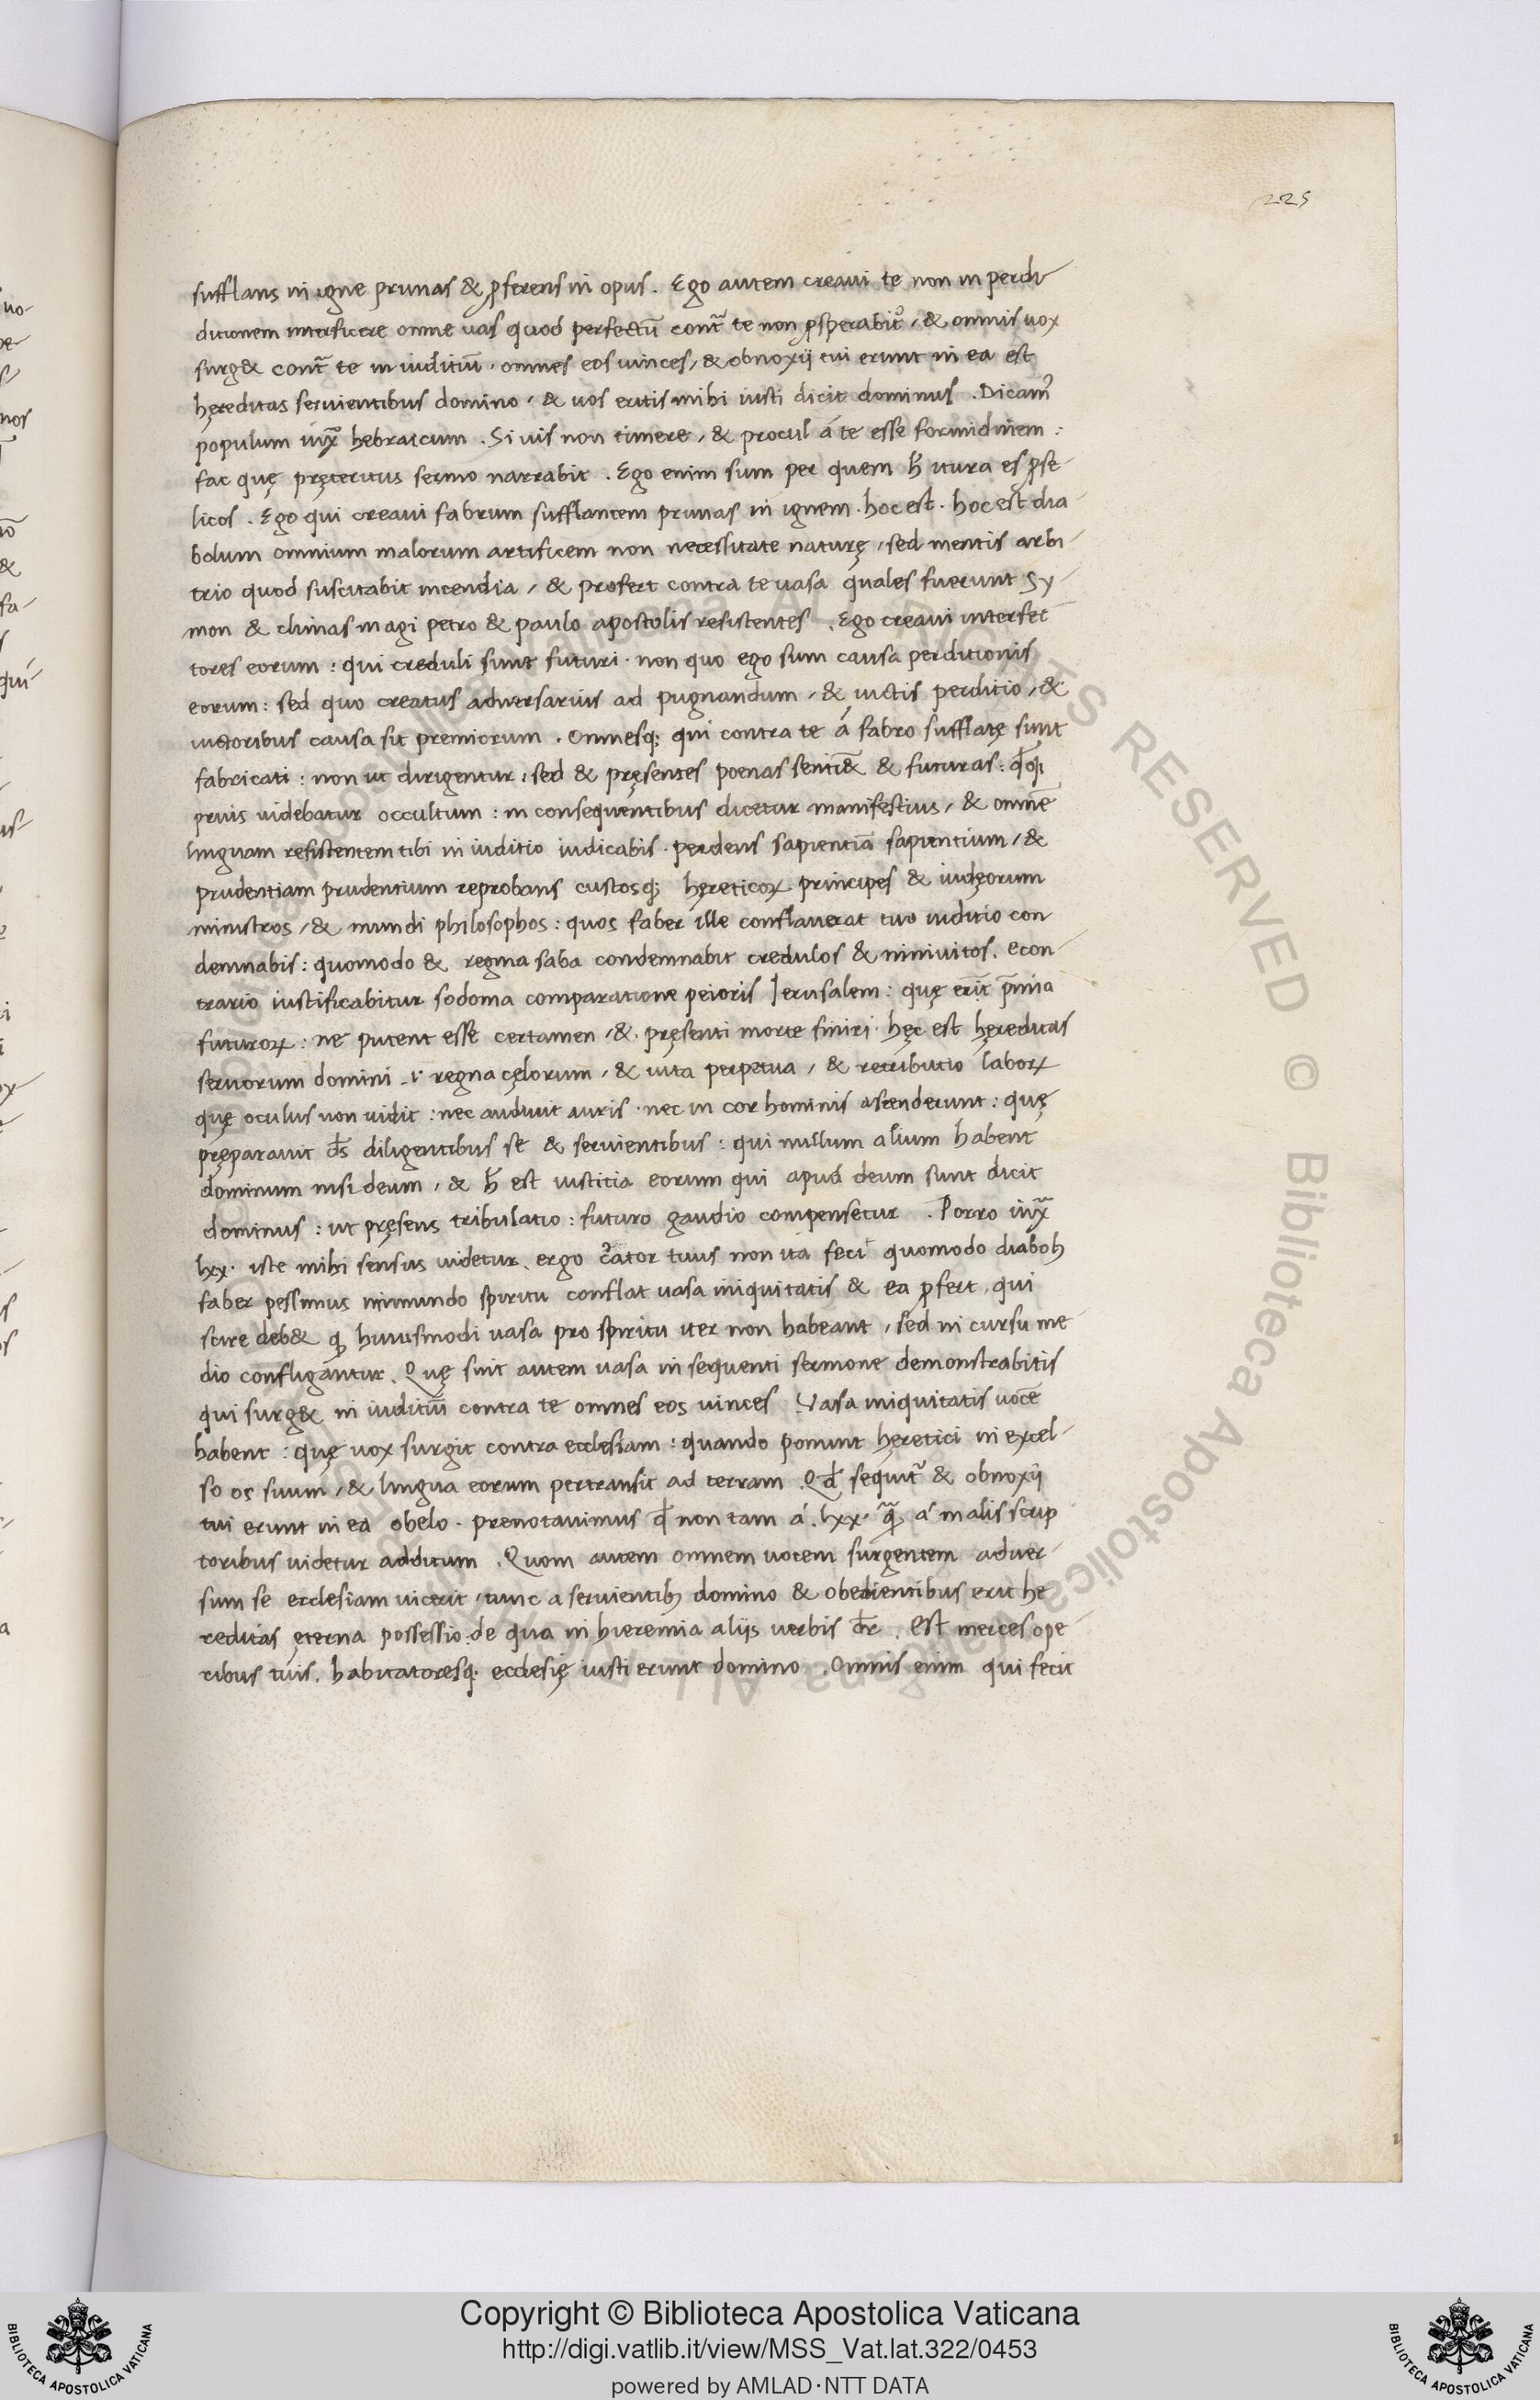 225
sufflans in igne prunas & ꝓferens in opus. Ego autem creaui te non in perdi-
ditionem interficere omne uas quod perfectū cont̃ te non ꝓsperabit᷑, & omnis uox
surg& cont̃ te in iuditiū. omnes eos uinces, & obnoxij tui erunt in ea est
hęreditas seruientibus domino, & uos eritis mihi iusti dicit dominus. Dicam᷒
populum iux̃ hebraicum. Si uis non timere, & procul á te esse formidinem:
fac quę pręteritus sermo narrabit. Ego enim sum per quem h̄ itura es ꝓse-
licos. Ego qui creaui fabrum sufflantem prunas in ignem. hoc est. hoc est dia
bolum omnium malorum artificem non necessitate naturę, sed mentis arbi-
trio quod suscitabit incendia, & profert contra te uasa quales fuerunt Sy-
mon & elimas magi petro & paulo apostolis resistentes. Ego creaui interfec
tores eorum: qui creduli sunt futuri. non quo ego sum causa perditionis
eorum: sed quo creatus aduersarius ad pugnandum, & uictis perditio, &
uictoribus causa sit premiorum. Omnesq; qui contra te á fabro sufflatę sunt
fabricati: non ut dirigentur: sed & pręsentes poenas senti& & futuras: qđq;
prius uidebatur occultum: in consequentibus dicetur manifestius, & omnē
linguam resistentem tibi in iuditio iudicabis. perdens sapientiā sapientium, &
prudentiam prudentium reprobans custosq; hęreticoꝝ principes & iudęorum
ministros, & mundi philosophos: quos faber ille conflauerat tuo iuditio con
demnabis: quomodo & regina saba condemnabit credulos & niniuitos. econ-
trario iustificabitur sodoma comparatione peioris Jerusalem: quę erit p̄mia
futuroꝝ: ne putent esse certamen, & pręsenti morte finiri. hęc est hęreditas
seruorum domini .i. regna cęlorum, & uita perpetua, & retributio laboꝝ
quę oculus non uidit: nec audiuit auris. nec in cor hominis ascenderunt: quę
pręparauit d̄s diligentibus se & seruientibus: qui nullum alium habent
dominum nisi deum, & h̄ est iustitia eorum qui apud deum sunt dicit
dominus: ut pręsens tribulatio: futuro gaudio compensetur. Porro iux̃
lxx. iste mihi sensus uidetur. ergo c᷑ator tuus non ita feci quomodo diaboł
faber pessimus inmundo spiritu conflat uasa iniquitatis & ea ꝓfert. qui
scire deb& ꝙ huiusmodi uasa pro spiritu iter non habeant, sed in cursu me
dio configantur. Quę sint autem uasa in sequenti sermone demonstrabitis
qui surg& in iuditiū contra te omnes eos uinces Vasa iniquitatis uocē
habent: quę uox surgit contra ecclesiam: quando ponunt hęretici in excel-
so os suum, & lingua eorum pertransit ad terram. Qđ sequit᷑ & obnoxij
tui erunt in ea obelo. prenotauimus qđ non tam á. lxx. quã á malis scrip
toribus uidetur additum. Quom autem omnem uocem surgentem aduer-
sum se ecclesiam uicerit, tunc a seruientibꝫ domino & obedientibus erit he
reditas ęterna possessio. de qua in hieremia aliis uerbis dr̄. Est merces ope
ribus tuis. habitatoresq; ecclesię iusti erunt domino. Omnis enim qui fecit
Copyright © Biblioteca Apostolica Vaticana
http://digi.vatlib.it/view/MSS_Vat.lat.322/0453
powered by AMLAD·NTT DATA